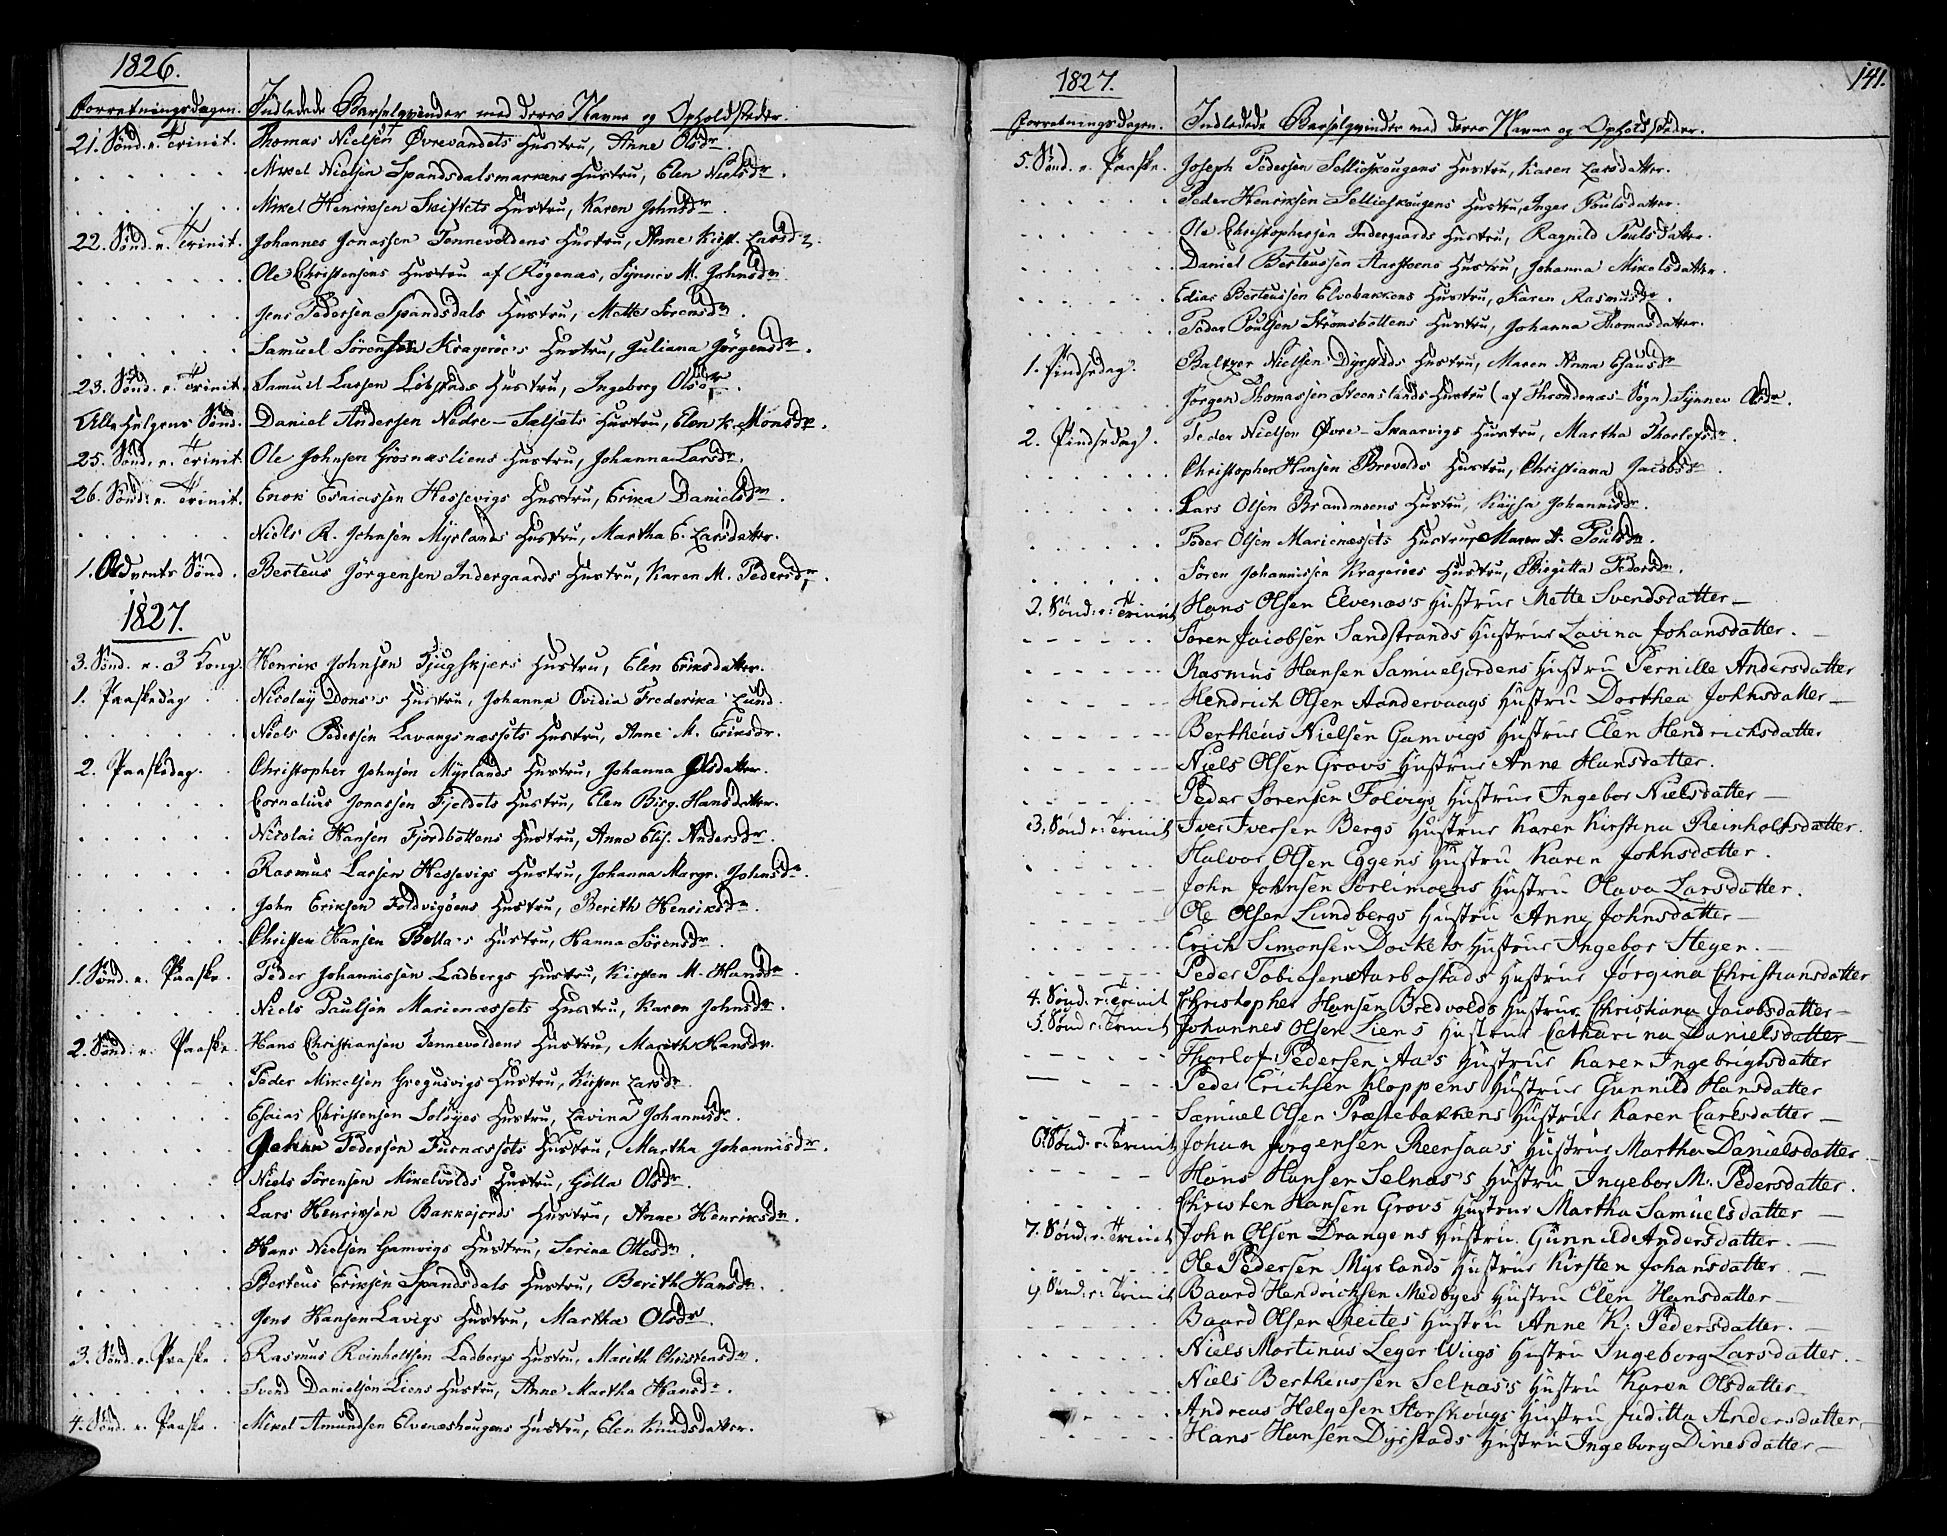 1826.
Forretningsdagen. Indledede Barselqvinder med deres Navne og Opholdsteder.
21. Sønd. e. Trinit. Thomas Nielsen Øvrevandets Hustru, Anne Olsdr.
Mikel Nielsen Spandsdalsmarkens Hustru, Elen Nielsdr.
Mikel Henriksen Skistets Hustru, Karen Johnsdr.
22. Sønd. e. Trinit. Johannes Jonassen Tennevoldens Hustru, Anne Kirst. Larsdr.
Ole Christensens Hustru af Rogenæs, Synnev M. Johnsdr.
Jens Pedersen Spandsdals Hustru, Mette Sørensdr.
Samuel Sørensen Kragerøe's Hustru, Juliana Jörgensdr.
23. Sönd. e. Trinit. Samuel Larsen Löbstads Hustru, Ingeborg Olsdr.
Alle Helgens Sönd. Daniel Andersen Nedre-Sælsæts Hustru, Elen K. Monsdr.
25. Sönd. e. Trinit. Ole Johnsen Grosnæsliens Hustru, Johanna Larsdr.
26. Sönd. e. Trinit. Enok Esaiassen Hessevigs Hustru, Erika Danielsdr.
Niels R. Johnsen Myrlands Hustru, Martha E. Larsdatter.
1. Advents Sönd. Berteus Jörgensen Indergaards Hustru, Karen M. Pedersdr.
1827.
3. Sönd. e. 3 Kong. Henrik Johnsen Tjugskjers Hustru, Elen Eriksdatter.
1. Paaskedag Nicolay Dons's Hustru, Johanna Ovidia Frederika Lund.
Niels Pedersen Lavangsnæssets Hustru, Anne M. Eriksdr.
2. Paaskedag. Christopher Johnsen Myrlands Hustru, Johanna Olsdatter.
Cornelius Jonassen Fjeldets Hustru, Elen Birg. Hansdatter.
Nicolai Hansen Fjordbottens Hustru, Anne Elis. Andersdr.
Rasmus Larsen Hessevigs Hustru, Johanna Margr. Johnsdr.
John Eriksen Foldvigöens Hustru, Berith Henriksdr.
Christen Hansen Bolla's Hustru, Hanna Sörensdr.
1. Sönd. e. Paaske. Peder Johannissen Ladbergs Hustru, Kirsten M. Hansdr.
Niels Paulsen Marienæssets Hustru, Karen Johnsdr.
2. Sönd. e. Paaske. Hans Christiansen Tennevoldens Hustru, Marith Hansdr.
Peder Mikelsen Gregusvigs Hustru, Kirsten Larsdr.
Esaias Christensen Solöyes Hustru, Lavina Johannisdr.
Johan Pedersen Furnæssets Hustru, Martha Johannisdr.
Niels Sörensen Mikelvolds Hustru, Gölla Olsdr.
Lars Henriksen Bakkejords Hustru, Anne Henriksdr.
Hans Nielsen Gamvigs Hustru, Serina Ottesdr.
Berteus Eriksen Spandsdals Hustru, Berith Hansdr.
Jens Hansen Lavigs Hustru, Martha Olsdr.
3. Sönd. e. Paaske. Rasmus Reinholtsen Ladbergs Hustru, Marith Christensdr.
Svend Danielsen Liens Hustru, Anne Martha Hansdr.
4. Sönd. e. Paaske. Mikel Amundsen Elvenæshaugens Hustru, Elen Knudsdatter.
1827.
141.
Forretningsdagen. Indledede Barselqvinder med deres Navne og Opholdsteder.
5. Sønd. e. Paaske. Joseph Pedersen Selliaskougens Hustru, Karen Larsdatter.
Peder Henriksen Selliaskougens Hustru, Inger Poulsdatter.
Ole Christophersen Indergaards Hustru, Ragnild Poulsdatter.
Daniel Berteussen Aarstens Hustru, Johanna Mikelsdatter.
Edias Berteussen Elvebakkens Hustru, Karen Rasmusdr.
Peder Poulsen Strömsbottens Hustru, Johanna Thomasdatter.
1. Pindsedag. Baltzer Nielsen Dyrstads Hustru, Maren Anna Esaiasdr
Jörgen Thomassen Steenslands Hustru (af Throndenæs-Sogn) Synnev Olsdr.
2. Pindsedag. Peder Nielsen Øvre-Skaarvigs Hustru, Martha Thorlefsdr.
Christopher Hansen Brevolds Hustru, Christiana Jacobsdr.
Lars Olsen Brandmoens Hustru, Kaysa Johannisdr.
Peder Olsen Marienæssets Hustru, Maren A. Poulsdr.
Sören Johannissen Kragerøes Hustru, Birgitta Pedersdr.
2. Sønd: e: Trinit Hans Olsen Elvenæs's Hustrue Mette Svendsdatter —
Søren Jacobsen Sandstrands Hustrue Lavina Johansdatter. —
Rasmus Hansen Samuelsjordens Hustru Pernille Andersdatter
Hendrich Olsen Aandervaags Hustru Dorthea Johnsdatter —
Bertheus Nielsen Gamvigs Hustrue Elen Hendrichsdatter
Niels Olsen Grovs Hustrue Anne Hansdatter.
Peder Sørensen Folvigs Hustrue Ingebor Nielsdatter —
3. Sønd e: Trinit Iver Iversen Bergs Hustrue Karen Kirstina Reinholtsdatter.
Halvor Olsen Eggens Hustru Karen Johnsdatter.
John Johnsen Sørlimoens Hustru Olava Larsdatter.
Ole Olsen Lundbergs Hustru Anne Johnsdatter —
Erich Simonsen Dockets Hustrue Ingebor Stegen. —
Peder Tobiasen Aarbostads Hustrue Jørgina Christiansdatter
4. Sønd. e: Trinit Christopher Hansen Bredvolds Hustrue Christiana Jacobsdatter —
5. Sønd e: Trinit Johannes Olsen Liens Hustrue Catharina Danielsdatter —
Thorlof Pedersen Aa's Hustrue Karen Ingebrigtsdatter
Peder Erichsen Kloppens Hustrue Gunnild Hansdatter
Samuel Olsen Præstebakkens Hustrue Karen Larsdatter —
6. Sønd. e: Trinit Johan Jørgensen Reensaa's Hustrue Martha Danielsdatter
Hans Hansen Selnæs's Hustru Ingebor M: Pedersdatter.
Christen Hansen Grovs Hustrue Martha Samuelsdatter —
7. Sønd: e: Trinit John Olsen Drangens Hustru Gunnild Andersdatter. —
Ole Pedersen Myrlands Hustrue Kirsten Johansdatter. —
9 Sønd: e: Trinit Baard Hendrichsen Medbyes Hustru Elen Hansdatter —
Baard Olsen Reites Hustru Anne K: Pedersdatter. —
Niels Mortinus Leger Wiigs Hustru Ingeborg Larsdatter. —
Niels Bertheussen Selnæs's Hustru Karen Olsdatter —
Andreas Helgesen Storskougs Hustru Juditta Andersdatter
Hans Hansen Dyrstads Hustru Ingeborg Dinesdatter —